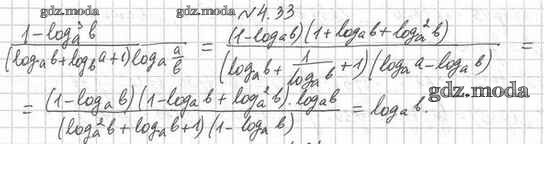 gdz.moda gdz.moda №4.33
(1-log³ₐb)/((logₐb+log_b a+1)logₐ(a/b)) = ((1-logₐb)(1+logₐb+log²ₐb))/((logₐb+1/(logₐb)+1)(logₐa-logₐb)) =
= ((1-logₐb)(1-logₐb+log²ₐb)·logₐb)/((log²ₐb+logₐb+1)(1-logₐb)) = logₐb.
gdz.moda